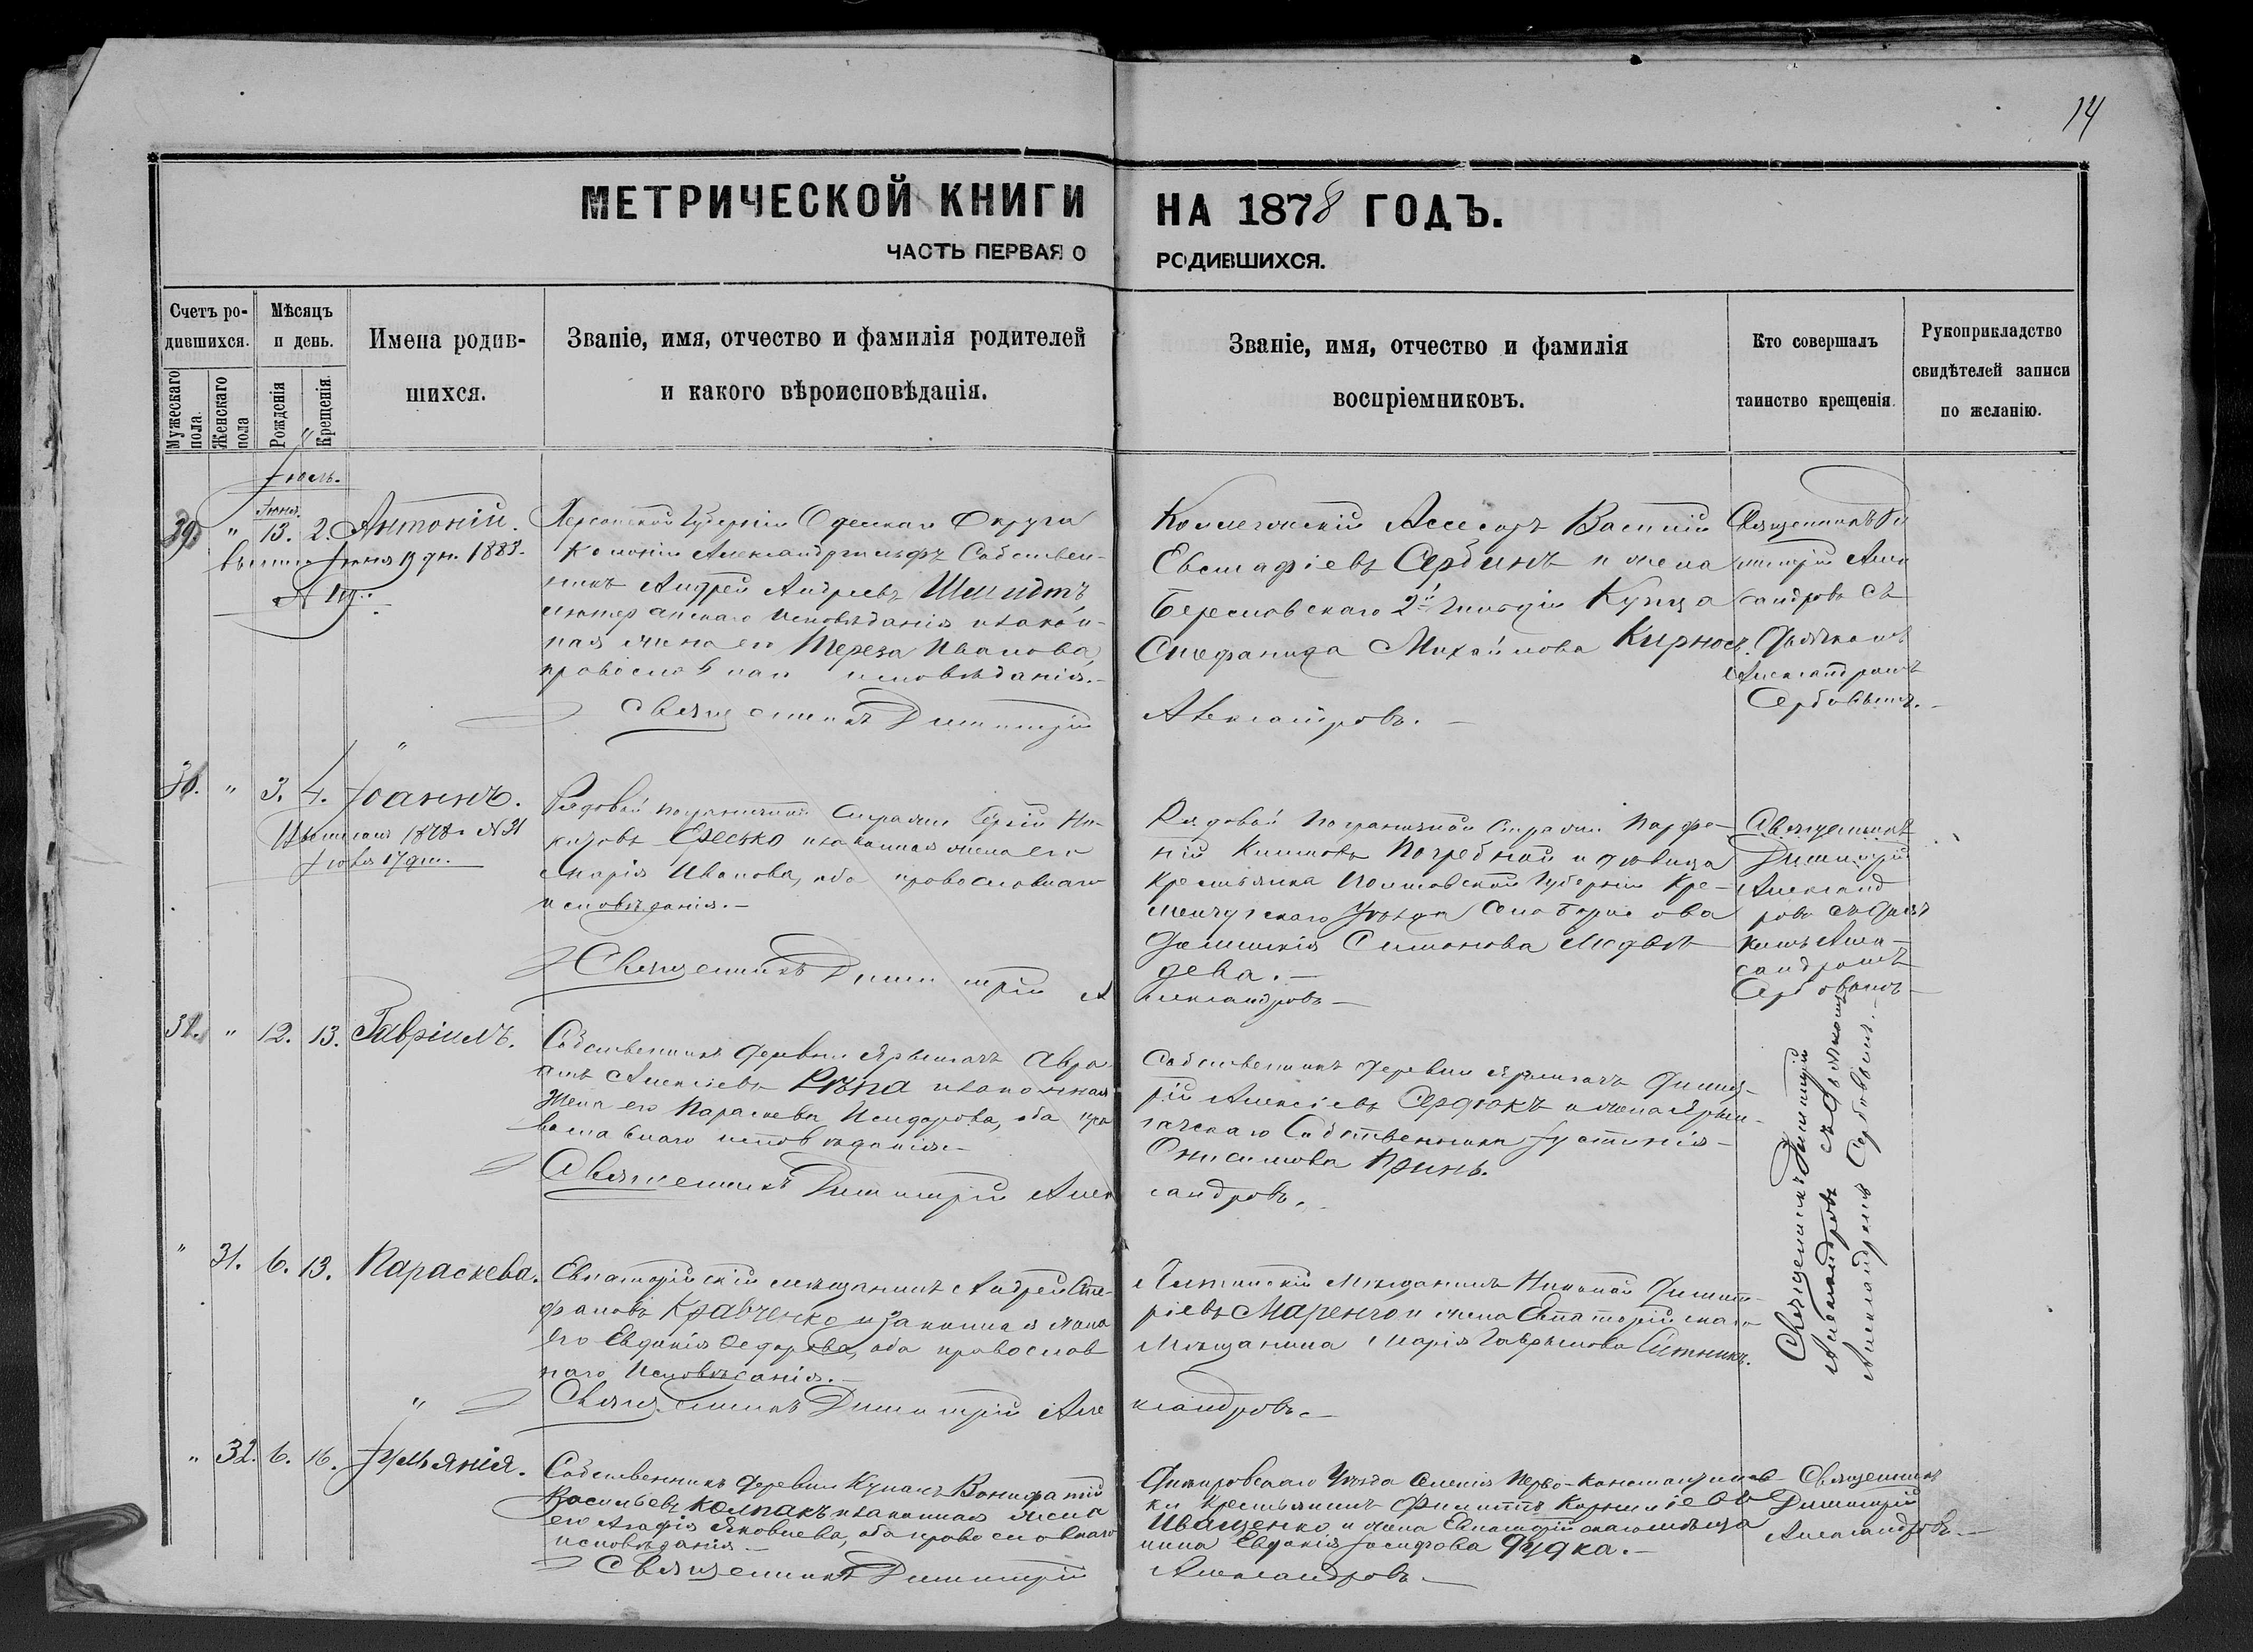 14
МЕТРИЧЕСКОЙ КНИГИ НА 1878 ГОДЪ.
ЧАСТЬ ПЕРВАЯ О РОДИВШИХСЯ.
Счетъ ро-
дившихся.
Мужескаго пола.
Женскаго пола
Мѣсяцъ
и день.
Рожденія
Крещенія.
Имена родив-
шихся.
Званіе, имя, отчество и фамилія родителей
и какого вѣроисповѣданія.
Званіе, имя, отчество и фамилія
воспріемниковъ.
Кто совершалъ
таинство крещенія.
Рукоприкладство
свидѣтелей записи
по желанію.
Іюль.
Іюня.
" 13. 2. Антоній.
Іюня 19 дн. 1883.
Херсонской Губерніи Одескаго Округа
Колоніи Александргильфъ Собствен-
никъ Андрей Андреевъ Шмидтъ
лютеранскаго исповѣданія и закон-
ная жена его Тереза Иванова,
православнаго исповѣданія.-
Священникъ Димитрій
Коллежскій Ассесоръ Василій
Евстафіевъ Сербинъ и жена
Бериславскаго 2й гильдіи Купца
Стефанида Михайлова Кирносъ.
Александровъ.-
Священникъ Ди
митрій Алек
сандровъ съ
Дьячкомъ
Александромъ
Сербовымъ.-
" 3. 4. Іоаннъ.
1878 г. № 21
Іюля 17 дн.
Рядовой пограничной Стражи Сергій Ни-
китовъ Елесько и законная жена его
Марія Иванова, оба православнаго
исповѣданія.-
Священникъ Димитрій А
Рядовой Пограничной Стражи Парфе-
ній Климовъ Погребной и дѣвица
Крестьянка Полтавской Губерніи Кре-
менчугскаго Уѣзда Села Борисова
Симонова Медвѣ-
дева.-
лександровъ-
Священникъ
Димитрій
Александ
ровъ съ Дьяч
комъ Алек-
сандромъ
Сербовымъ-
" 12. 13. Гавріилъ.
Собственникъ деревни Ярылгачъ Авра
амъ Алексіевъ Рѣпа и законная
жена его Параскева Исидорова, оба пра
вославнаго исповѣданія.-
Священникъ Димитрій Алек
Собственникъ деревни Ярылгачъ Димит-
рій Алексіевъ Сердюкъ и жена Ярыл-
гачскаго Собственника Іустинія
Онисимова Принь.
сандровъ.
Священникъ Димитрій
Александровъ съ Дьячкомъ
Александромъ Сербовымъ.-
" 31. 6. 13. Параскева.
Евпаторійскій мѣщанинъ Андрей Сте-
фановъ Кравченко и законная жена
его Евдокія Федорова, оба православ
наго исповѣданія.-
Священникъ Димитрій Але
Мѣщанинъ Николай Димит-
ріевъ Маренго и жена Евпаторійскаго
Мѣщанина Марія Гаврилова Ситникъ.
ксандровъ.-
" 32. 6. 16. Іуліанія.
Собственникъ деревни Кунанъ Вонифатій
Васильевъ Колпакъ и законная жена
его Агафія Яковлева, оба православнаго
исповѣданія.-
Священникъ Димитрій
Днѣпровскаго Уѣзда Селенія Перво-Константинов-
ки Крестьянинъ Филиппъ Корниліевъ
Иващенко и жена Евпаторійскаго мѣща
нина Евдокія Іосифова Дудка.-
Александровъ-
Священникъ
Димитрій
Александровъ.-